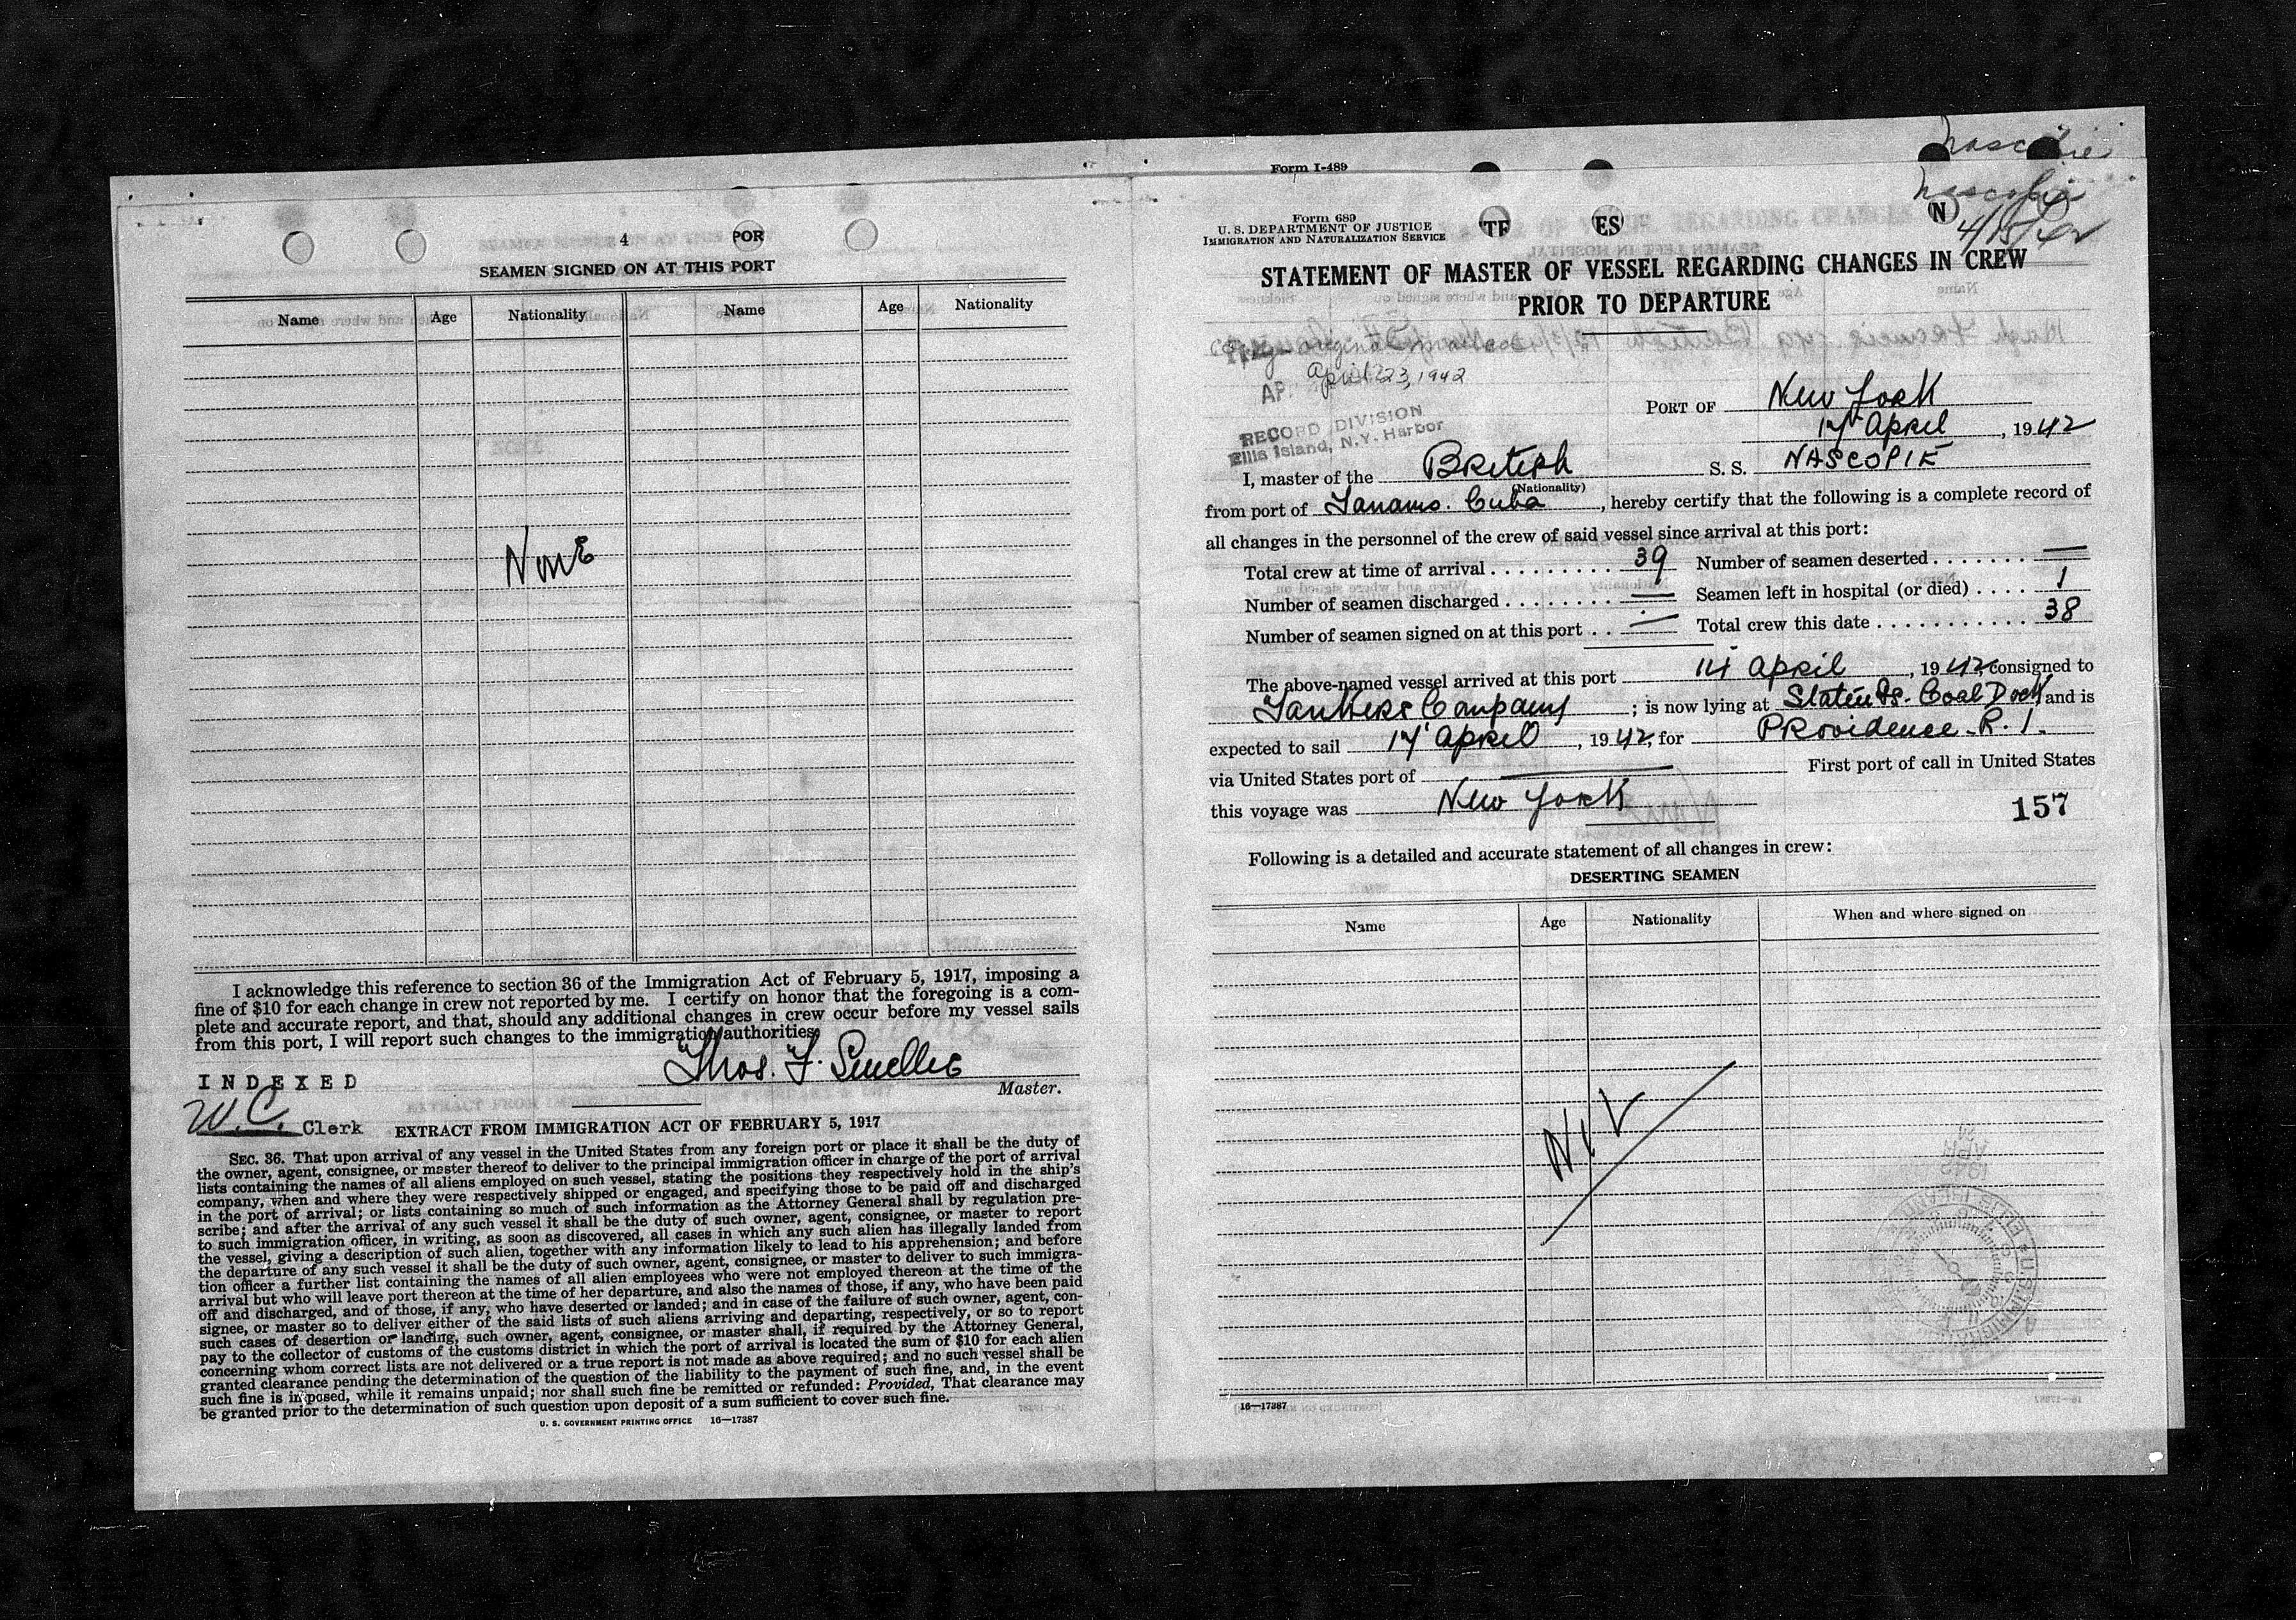 4
POR
SEAMEN SIGNED ON AT THIS PORT
Name Age Nationality Name Age Nationality
None
I acknowledge this reference to section 36 of the Immigration Act of February 5, 1917, imposing a
fine of $10 for each change in crew not reported by me. I certify on honor that the foregoing is a com-
plete and accurate report, and that, should any additional changes in crew occur before my vessel sails
from this port, I will report such changes to the immigration authorities.
Thos. F. Smellie
Master.
INDEXED
W.C. Clerk
EXTRACT FROM IMMIGRATION ACT OF FEBRUARY 5, 1917
SEC. 36. That upon arrival of any vessel in the United States from any foreign port or place it shall be the duty of
the owner, agent, consignee, or master thereof to deliver to the principal immigration officer in charge of the port of arrival
lists containing the names of all aliens employed on such vessel, stating the positions they respectively hold in the ship's
company, when and where they were respectively shipped or engaged, and specifying those to be paid off and discharged
in the port of arrival; or lists containing so much of such information as the Attorney General shall by regulation pre-
scribe; and after the arrival of any such vessel it shall be the duty of such owner, agent, consignee, or master to report
to such immigration officer, in writing, as soon as discovered, all cases in which any such alien has illegally landed from
the vessel, giving a description of such alien, together with any information likely to lead to his apprehension; and before
the departure of any such vessel it shall be the duty of such owner, agent, consignee, or master to deliver to such immigra-
tion officer a further list containing the names of all alien employees who were not employed thereon at the time of the
arrival but who will leave port thereon at the time of her departure, and also the names of those, if any, who have been paid
off and discharged, and of those, if any, who have deserted or landed; and in case of the failure of such owner, agent, con-
signee, or master so to deliver either of the said lists of such aliens arriving and departing, respectively, or so to report
such cases of desertion or landing, such owner, agent, consignee, or master shall, if required by the Attorney General,
pay to the collector of customs of the customs district in which the port of arrival is located the sum of $10 for each alien
concerning whom correct lists are not delivered or a true report is not made as above required; and no such vessel shall be
granted clearance pending the determination of the question of the liability to the payment of such fine, and, in the event
such fine is imposed, while it remains unpaid; nor shall such fine be remitted or refunded: Provided, That clearance may
be granted prior to the determination of such question upon deposit of a sum sufficient to cover such fine.
U. S. GOVERNMENT PRINTING OFFICE 16—17387
Form I-489
Nascopie
Nascopie
Form 689
U. S. DEPARTMENT OF JUSTICE
IMMIGRATION AND NATURALIZATION SERVICE
TF ES N
STATEMENT OF MASTER OF VESSEL REGARDING CHANGES IN CREW
PRIOR TO DEPARTURE
Copy - original mailed
April 23, 1942
RECORD DIVISION
Ellis Island, N.Y. Harbor
PORT OF New York
17 April, 1942
I, master of the British S. S. NASCOPIE
(Nationality)
from port of Tanamo. Cuba, hereby certify that the following is a complete record of
all changes in the personnel of the crew of said vessel since arrival at this port:
Total crew at time of arrival 39 Number of seamen deserted —
Number of seamen discharged — Seamen left in hospital (or died) 1
Number of seamen signed on at this port — Total crew this date 38
The above-named vessel arrived at this port 14 April, 1942, consigned to
Tankers Company; is now lying at Staten Is. Coal Dock and is
expected to sail 17 April, 1942, for Providence. R. I.
via United States port of — First port of call in United States
this voyage was New York
157
Following is a detailed and accurate statement of all changes in crew:
DESERTING SEAMEN
Name Age Nationality When and where signed on
16—17387